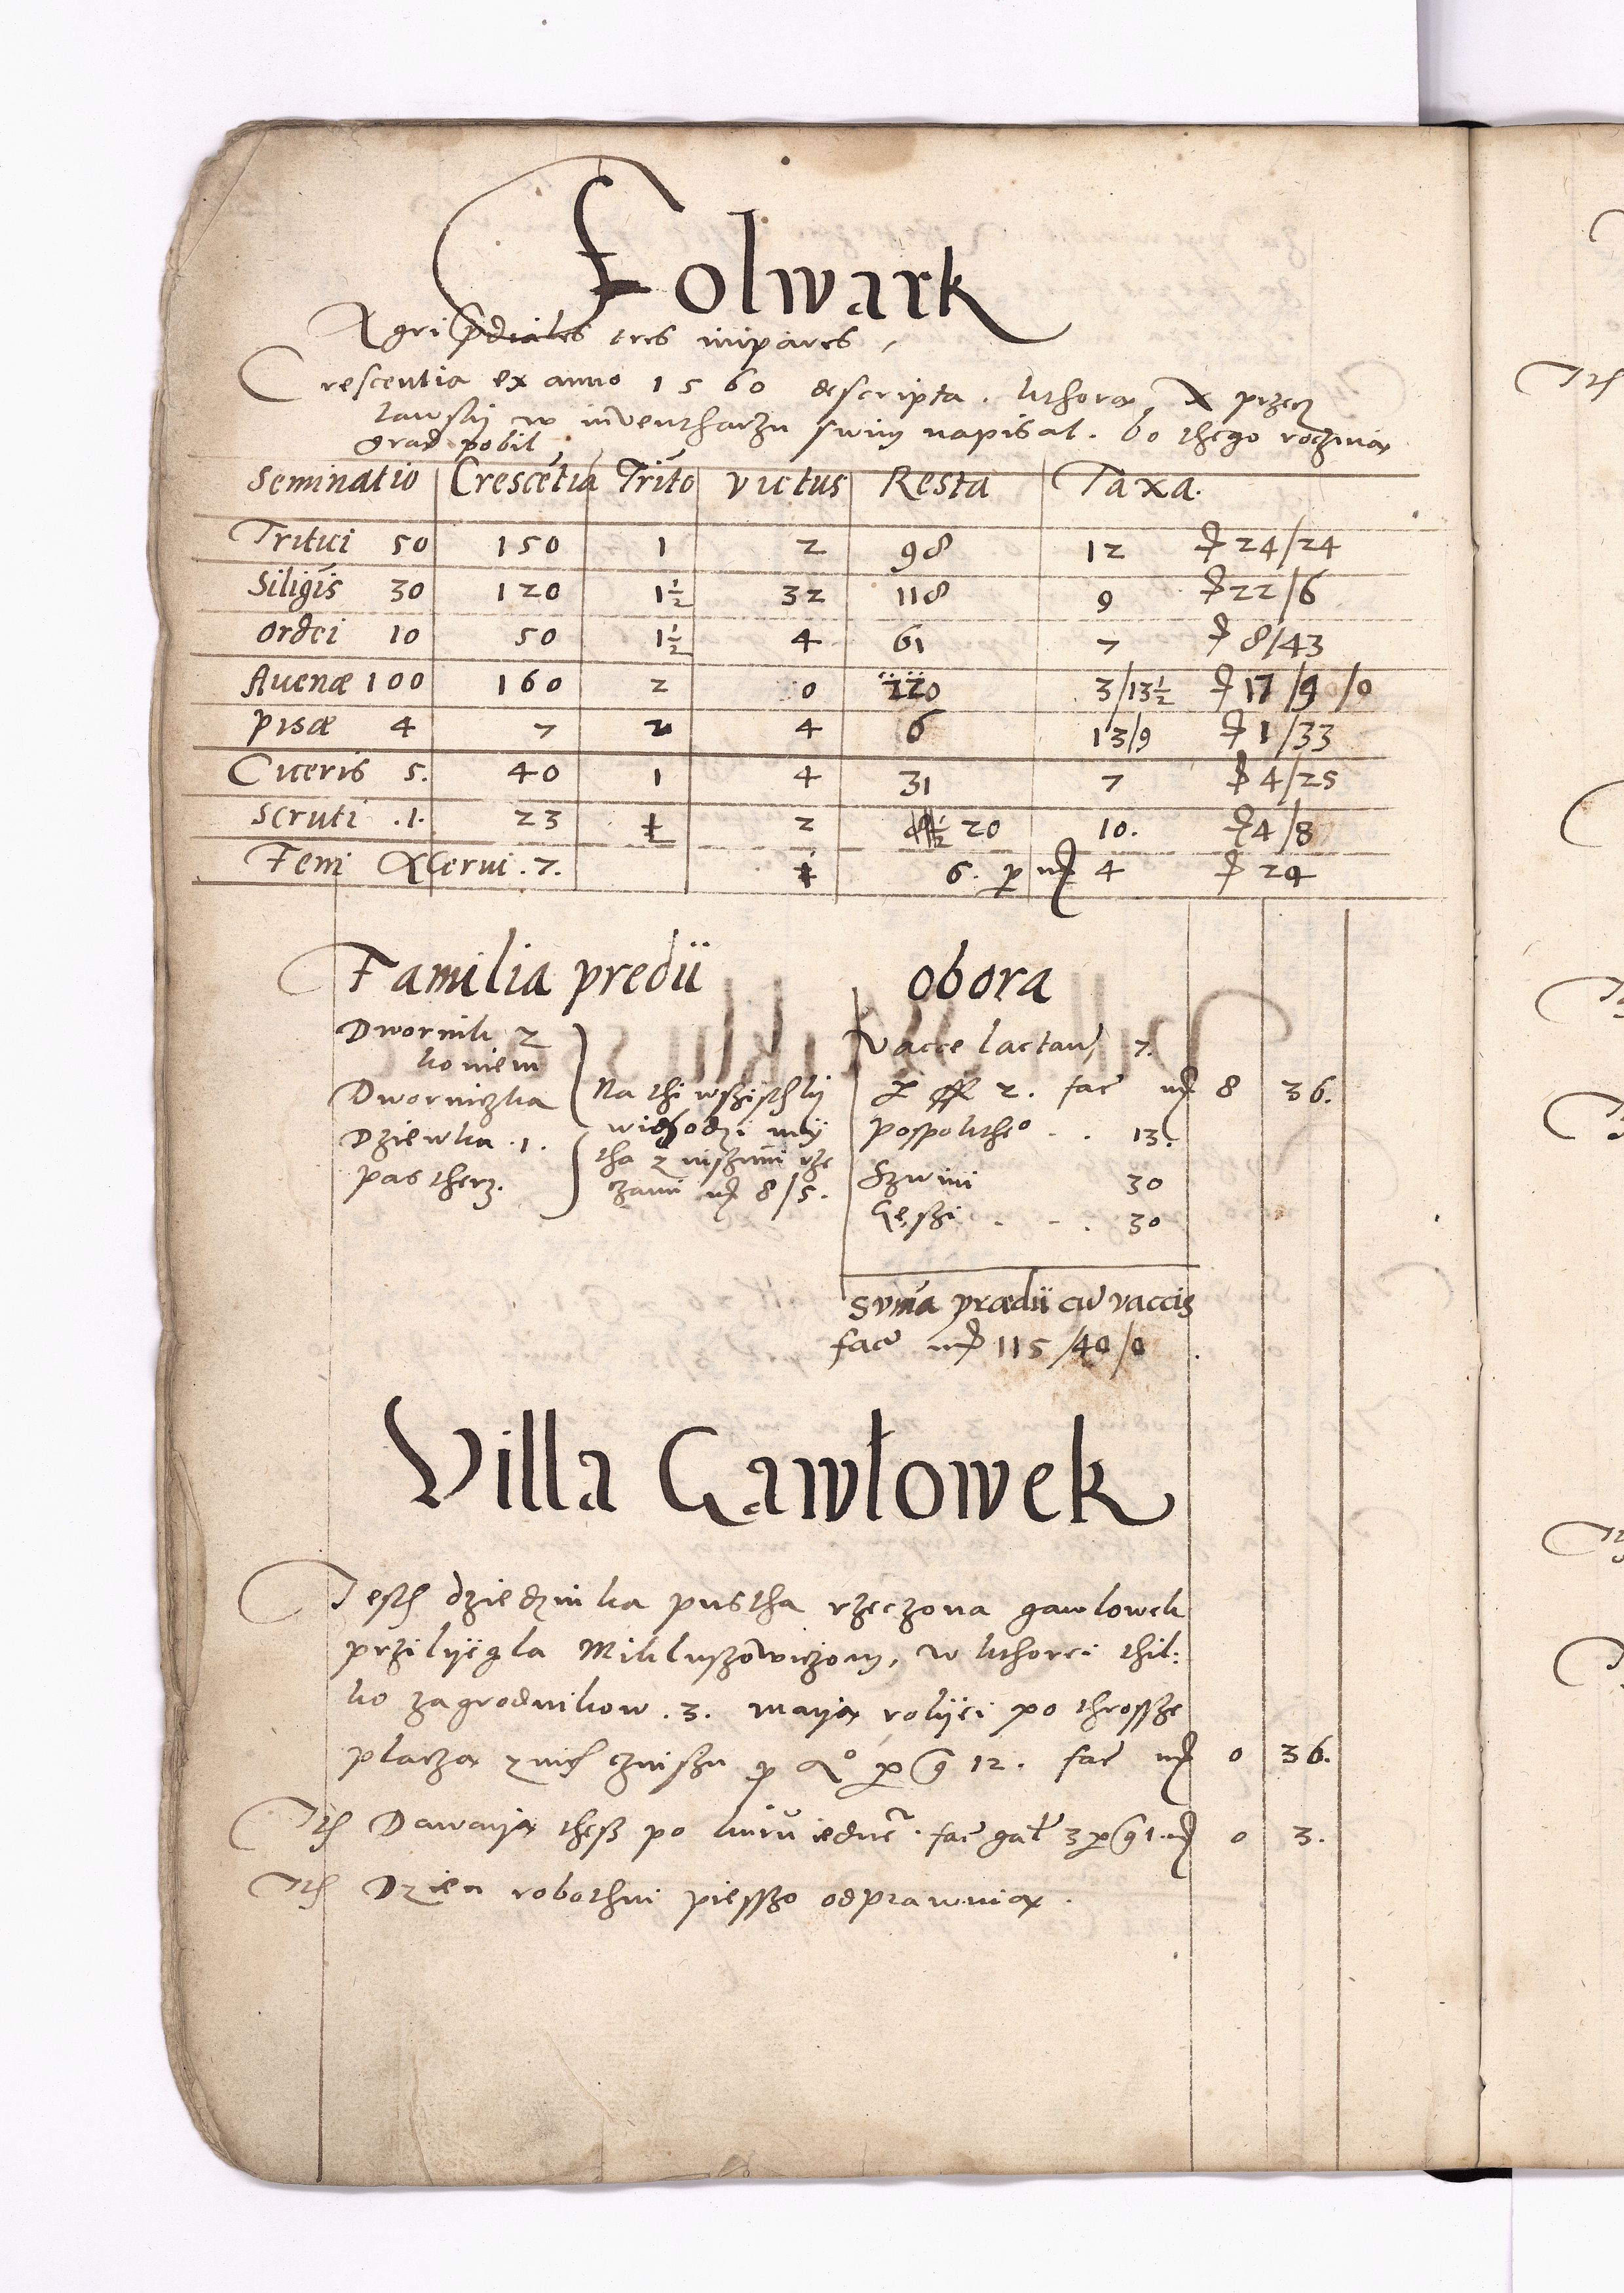 Folwark
Agri p̄diales tres impares,
Crescentia ex anno 1560 descripta. kthorą X przerę
tawski w inventharzu swim napisal. bo thego rocznią
grad pobil
Seminatio Crescẽtia Trito victus Resta Taxa.
Tritici 50 150 1 2 98 12 24/24
Siligĩs 30 120 1½ 32 118 9 22/6
Ordei 10 50 1½ 4 61 7 8/43
Auenæ 100 160 2 0 220 3/13½ 17/9/0
pisæ 4 7 2 4 6 13/9 1/33
Ciceris 5. 40 1 4 31 7 4/25
Scruti .1. 23 2 20 10. 4/8
Feni Acervi .7. 6. p mr 4 24
Familia predii
Dwornik z
koniem
Dworniczka
Dziewka .1.
pastherz.
Na thi wszisthki
wichodzi mÿ
tha z inszimi rze
czami mr 8/5.
obora
Vacce lactañ 7.
2. fac̃ mr 8 36.
pospolitheº . . 13.
Szwini 30
Gęszi . - . 30
Sum̃a prædii cũ vaccis
faciũ mr 115/40/0
Villa Gawłowek
Jesth dziedzinka pustha rzeczona gawlowek
przilÿegla Mikluszowiczom, w kthorei thil:
ko zagrodnikow .3. mayą rolÿei po throssze
placzą z nich czinszu p Aº p g 12. fac̃ mr 0 36.
Ith Dawayą thesz po kuru iednẽ. fac̃ gał 3 p g 1. mr 0 3.
Ith Dzien robothni piesszo odprawuią.